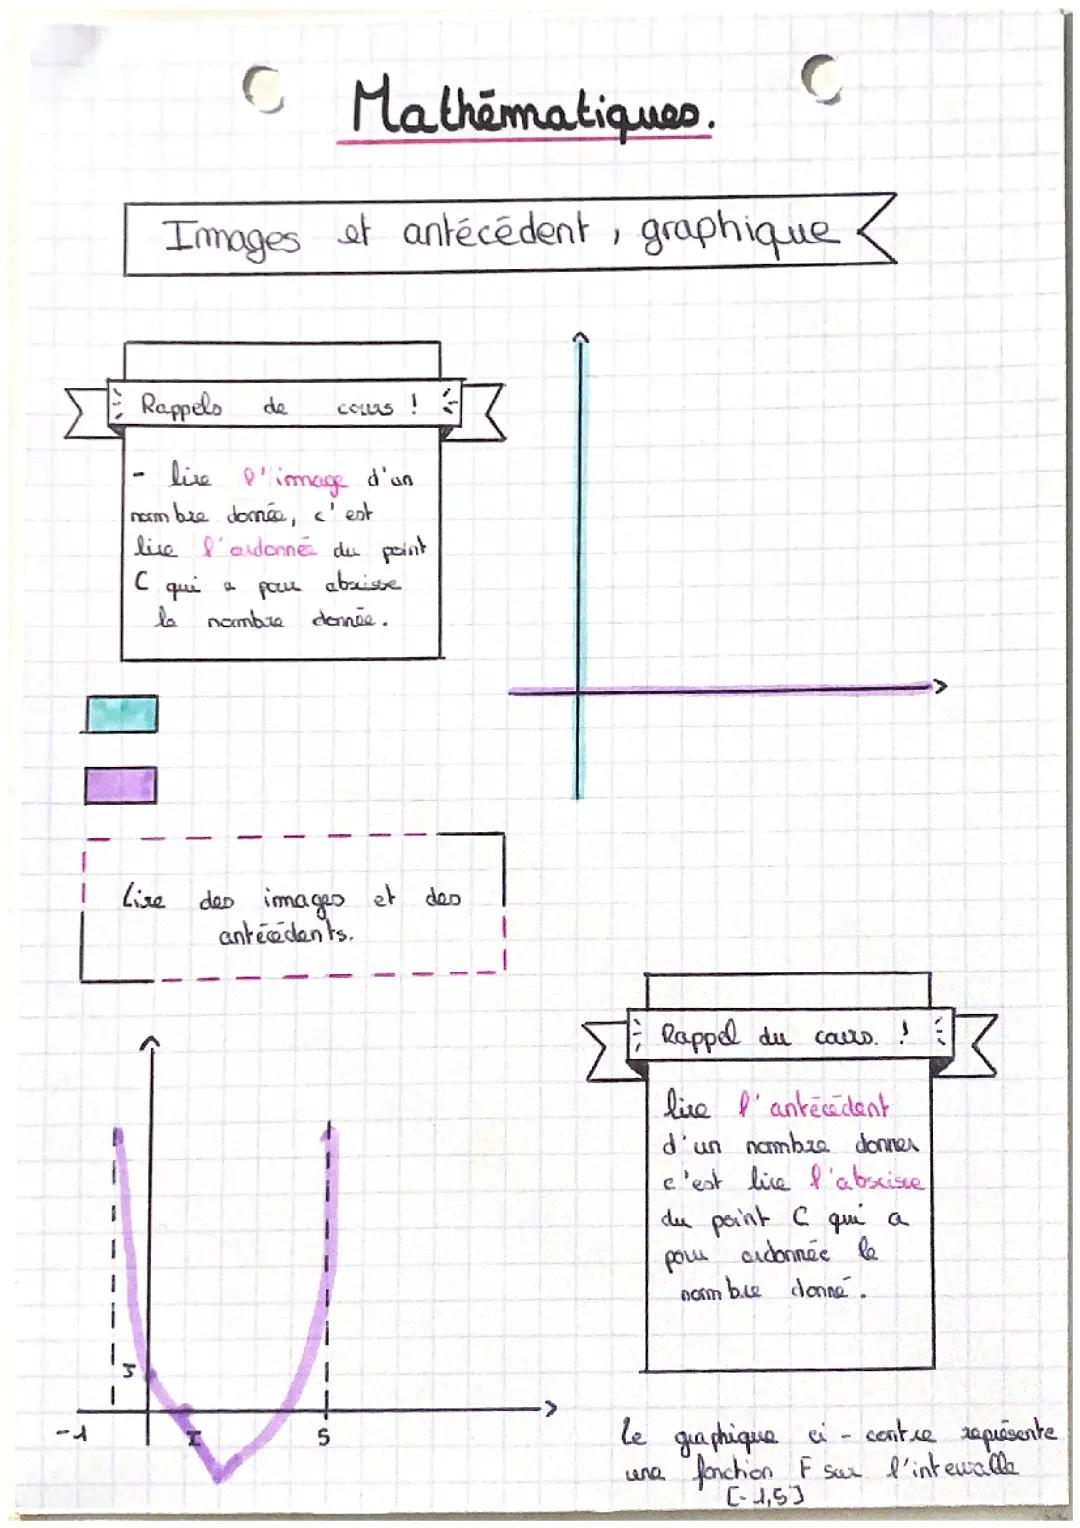 Mathématiques.
Images et antécédent, graphique
Rappels de cours !
- lire l'image d'un
nombre donnée, c'est
lire l'ordonnée du point
C qui a pour abscisse
le nombre donnée.
Lire des images et des
antécédents.
Rappel du cours !
lire l'antécédent
d'un nombre donner
c'est lire l'abscisse
du point C qui a
pour ordonnée le
nombre donné.
J
-1
I
5
Le graphique ci-contre représente
une fonction F sur l'intervalle
[-1,5]